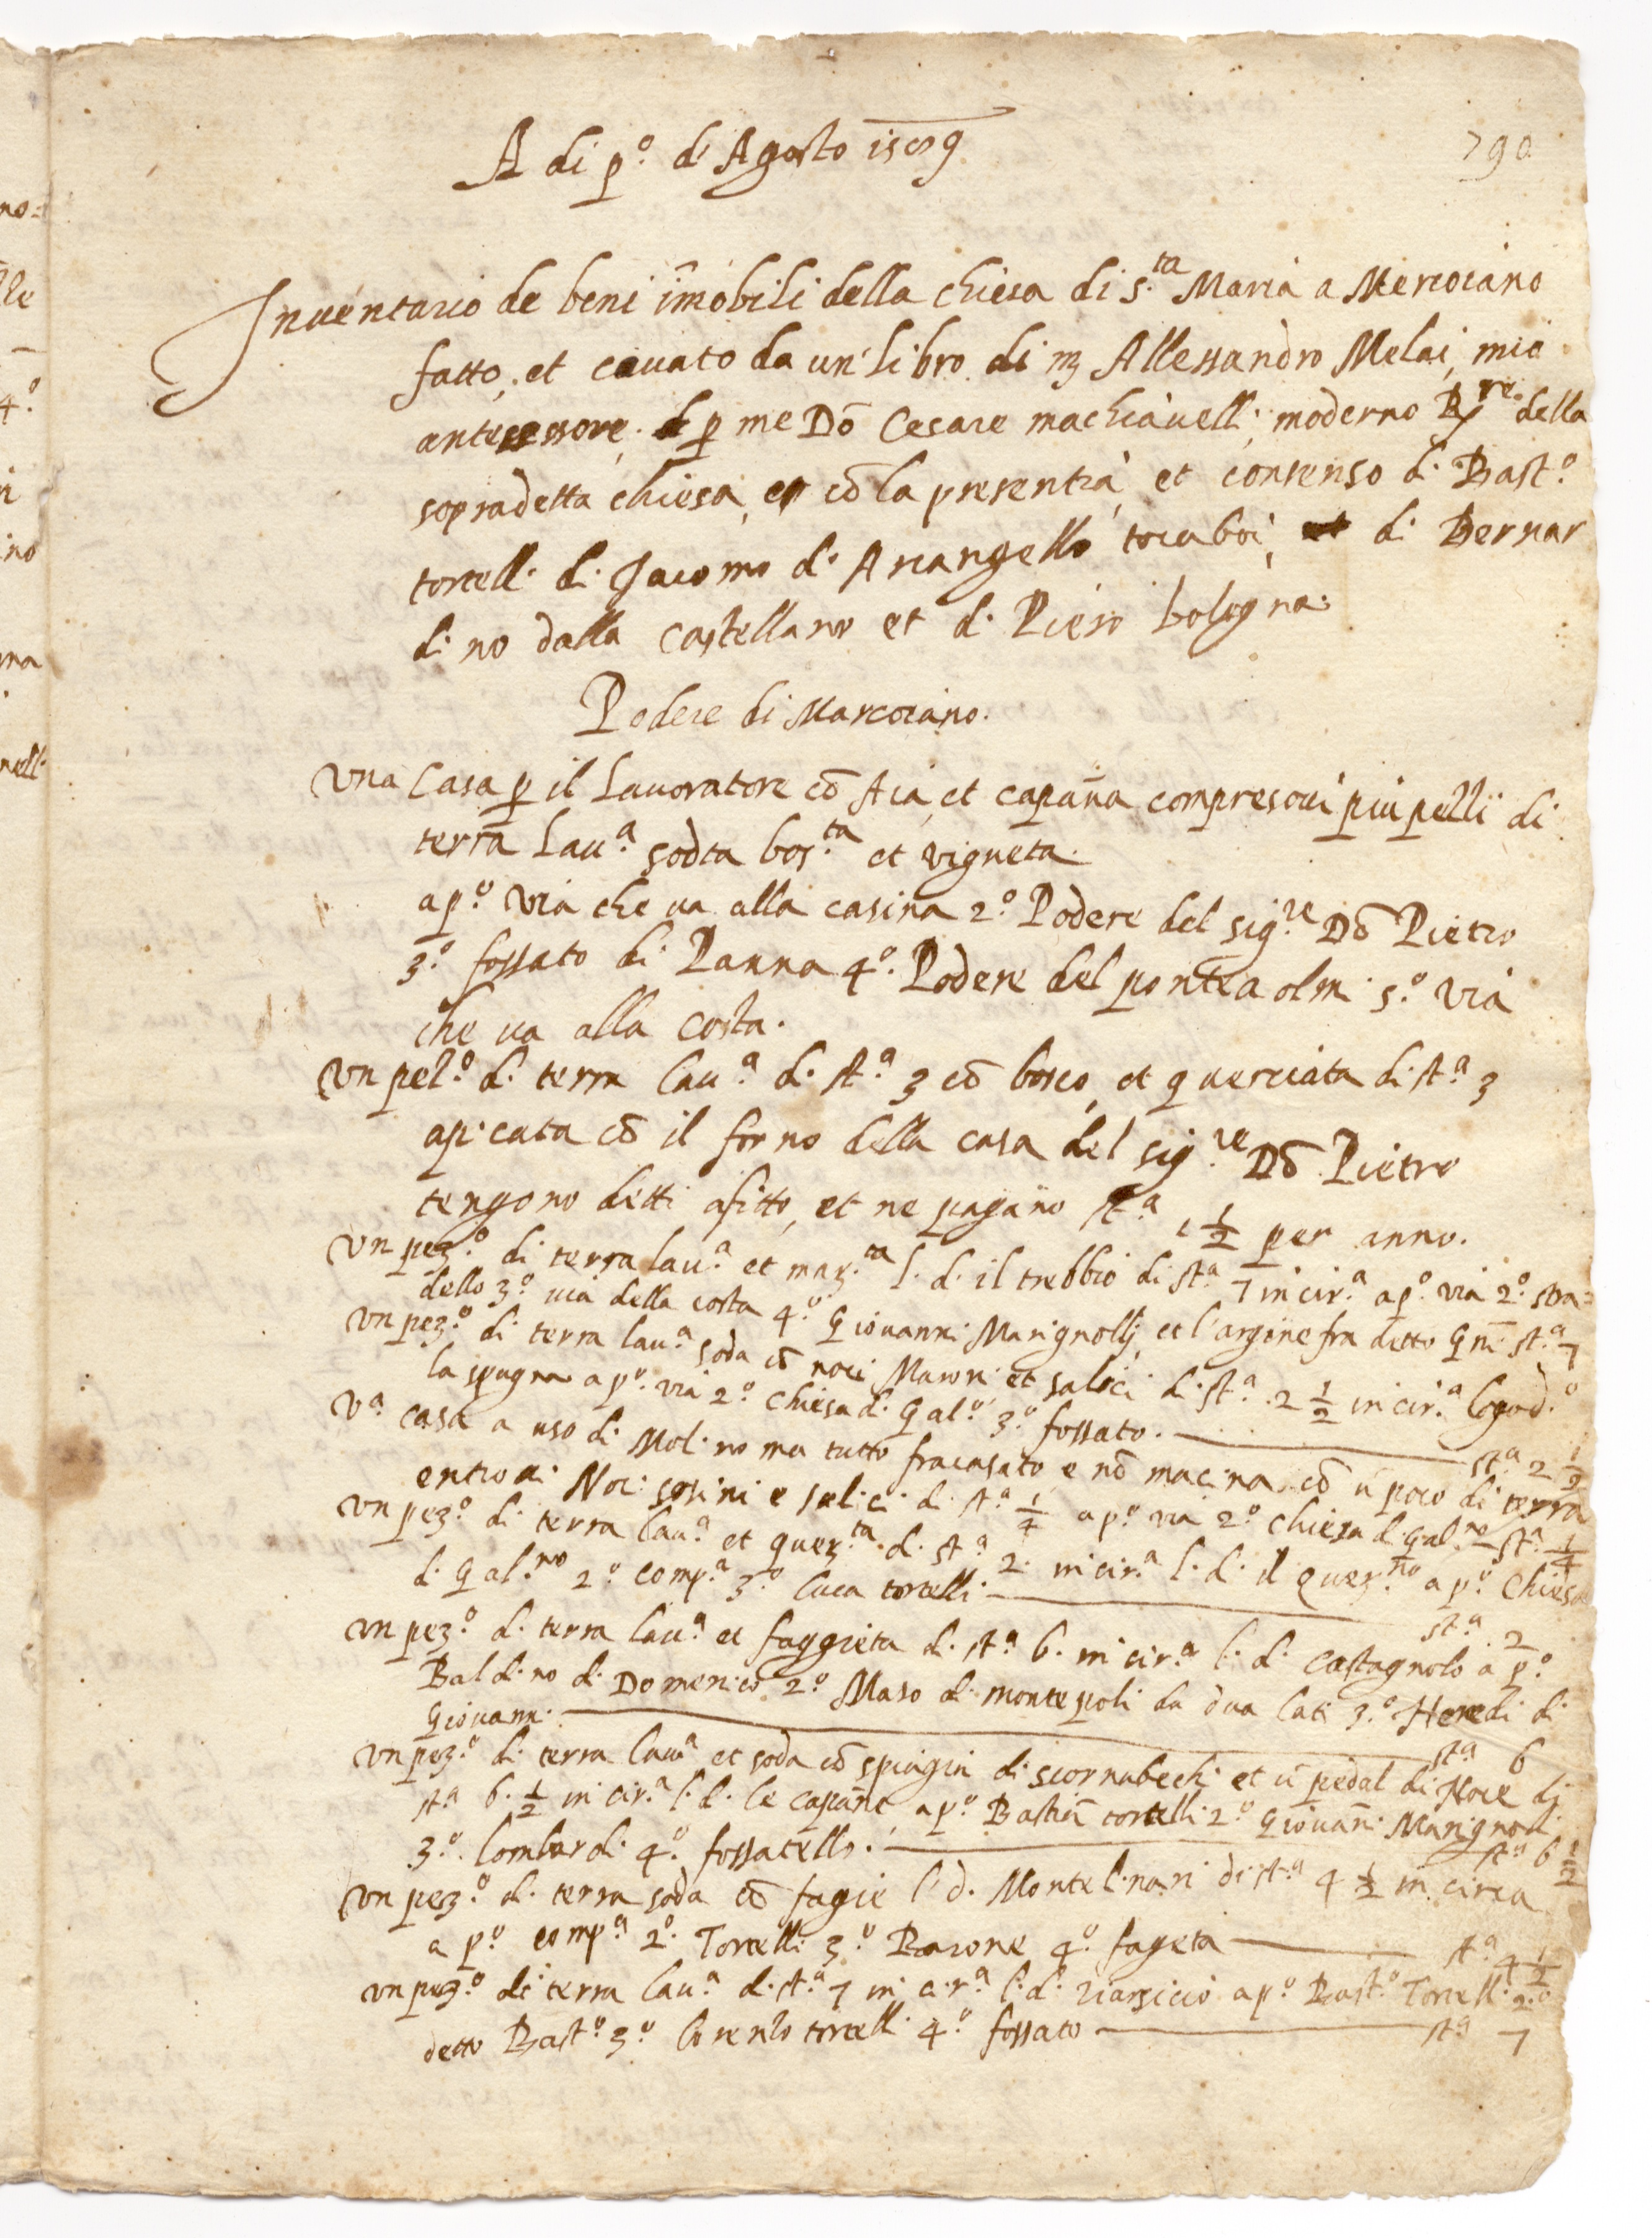 A di p.º di Agosto
790
Inventario de beni im̃obili della chiesa di s.ta Maria a Mercoiano
fatto, et cavato da un' libro di m3 Allessandro Melai, mio
antecessore, p me Dõ Cesare machiavelli, moderno R.re della
sopradetta chiesa, cõ la presentia, et consenso di Bast.º
torcelli di Jacomo di Arcangello tocaboi, di Bernar
dino dalla Castellano et di Piero bologna.
Podere di Marcoiano.
Una Casa p il Lavoratore cõ Aia, et capan̄a compresovi piu pelli di
terra Lau.ª sodta bos.ta et vigneta.
a p.º via che va alla casina 2.º Podere del sig.re Dõ Pietro
3.º fossato di Panna 4.º Podere del ponte a olmi 5.º via
che va alla costa.
Un pel.º di terra lau.ª di st.ª 3 cõ bosco, et querciata di st.ª 3
apicata cõ il forno della casa del sig.re Dõ Pietro
tengono detti afitto, et ne pagano st.ª 1 1/2 per anno.
Un pez.º di terra lau.ª et mar.ta l. d. il trebbio di st.ª 7 in cir.ª a p.º via 2.º
dello 3.º via della costa 4.º Giovanni Marignolli, et l'argine fra detto Gñi st.ª 7
Un pez.º di terra lau.ª soda cõ noci Maroni et salici di st.ª 2 1/2 in cir.ª
la spugna a p.º via 2.º Chiesa di Gal.º 3.º fossato. st.ª 2 1/2
V.ª casa a uso di Molino ma tutto fracasato e nõ macina cõ ũ poco di terra
entrovi Noci sosini e salici di st.ª 1/4 a p.º via 2.º chiesa di Gal.no st.ª 1/4
Un pez.º di terra lau.ª et quer.ta di st.ª 2. in cir.ª l. d. il quer.to a p.º Chiesa
di Gal.no 2.º comp.ª 3.º luca torcelli st.ª 2
Un pez.º di terra lau.ª et faggieta di st.ª 6. in cir.ª l. d. castagnolo a p.º
Baldino di Domenico 2.º Maso di montepoli da dua lati 3.º Heredi di
Giovanni. st.ª 6
Un pez.º di terra lau.ª et soda cõ di scornabechi et ũ pedal di Noce di
st.ª 6. 1/2 in cir.ª l. d. le capan̄e, a p.º Bastiã torcelli 2.º Giovan̄i Marignoli
3.º lombardi 4.º fossatello. st.ª 6 1/2
Un pez.º di terra soda cõ fagie l. d. Montelinari di st.ª 4 1/2 in circa
a p.º comp.ª 2.º Torcelli 3.º Barone 4.º fageta st.ª 4 1/2
Un pez.º di terra lau.ª di st.ª 7 in cir.ª l. d. riarsicio a p.º Bast.º Torcelli 2.º
detto Bast.º 3.º lorenzo torcelli 4.º fossato st.ª 7